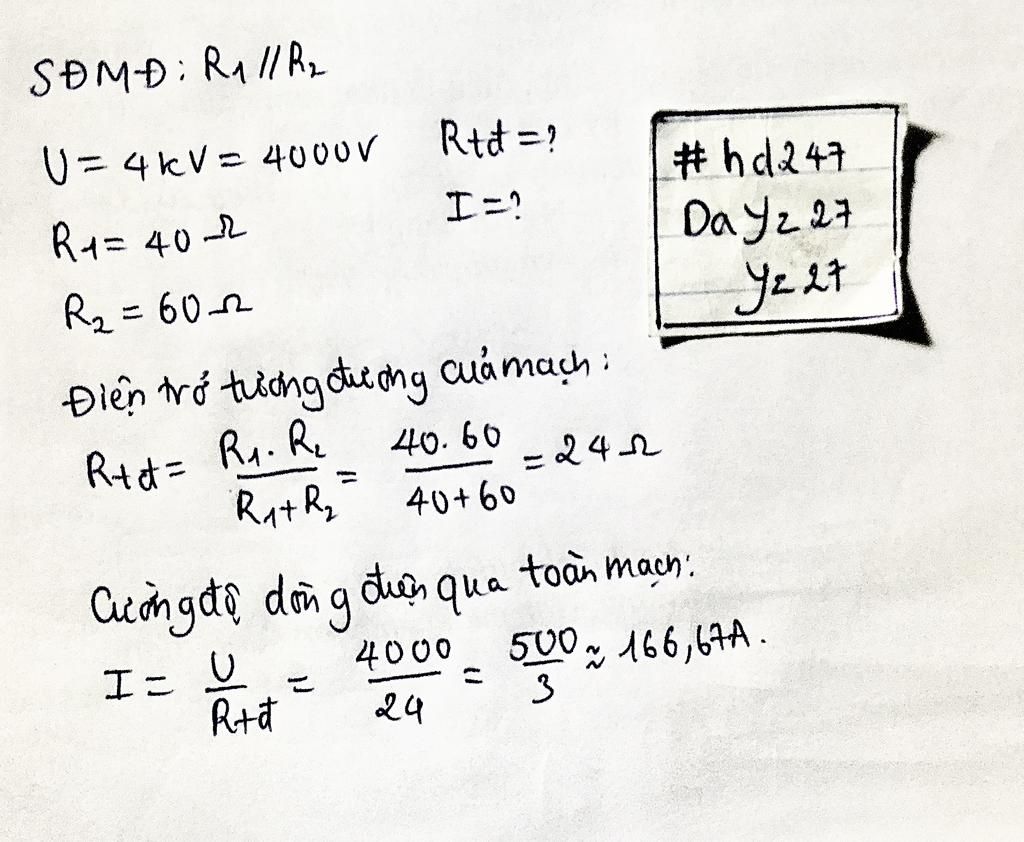 SĐMĐ: R₁ // R₂
U = 4kV = 4000V
Rtđ = ?
R₁ = 40 Ω
I = ?
R₂ = 60 Ω
#hd247
DaYz27
Yz27
Điện trở tương đương của mạch:
Rtđ = R₁.R₂ / R₁+R₂ = 40.60 / 40+60 = 24 Ω
Cường độ dòng điện qua toàn mạch:
I = U / Rtđ = 4000 / 24 = 500 / 3 ≈ 166,67A.